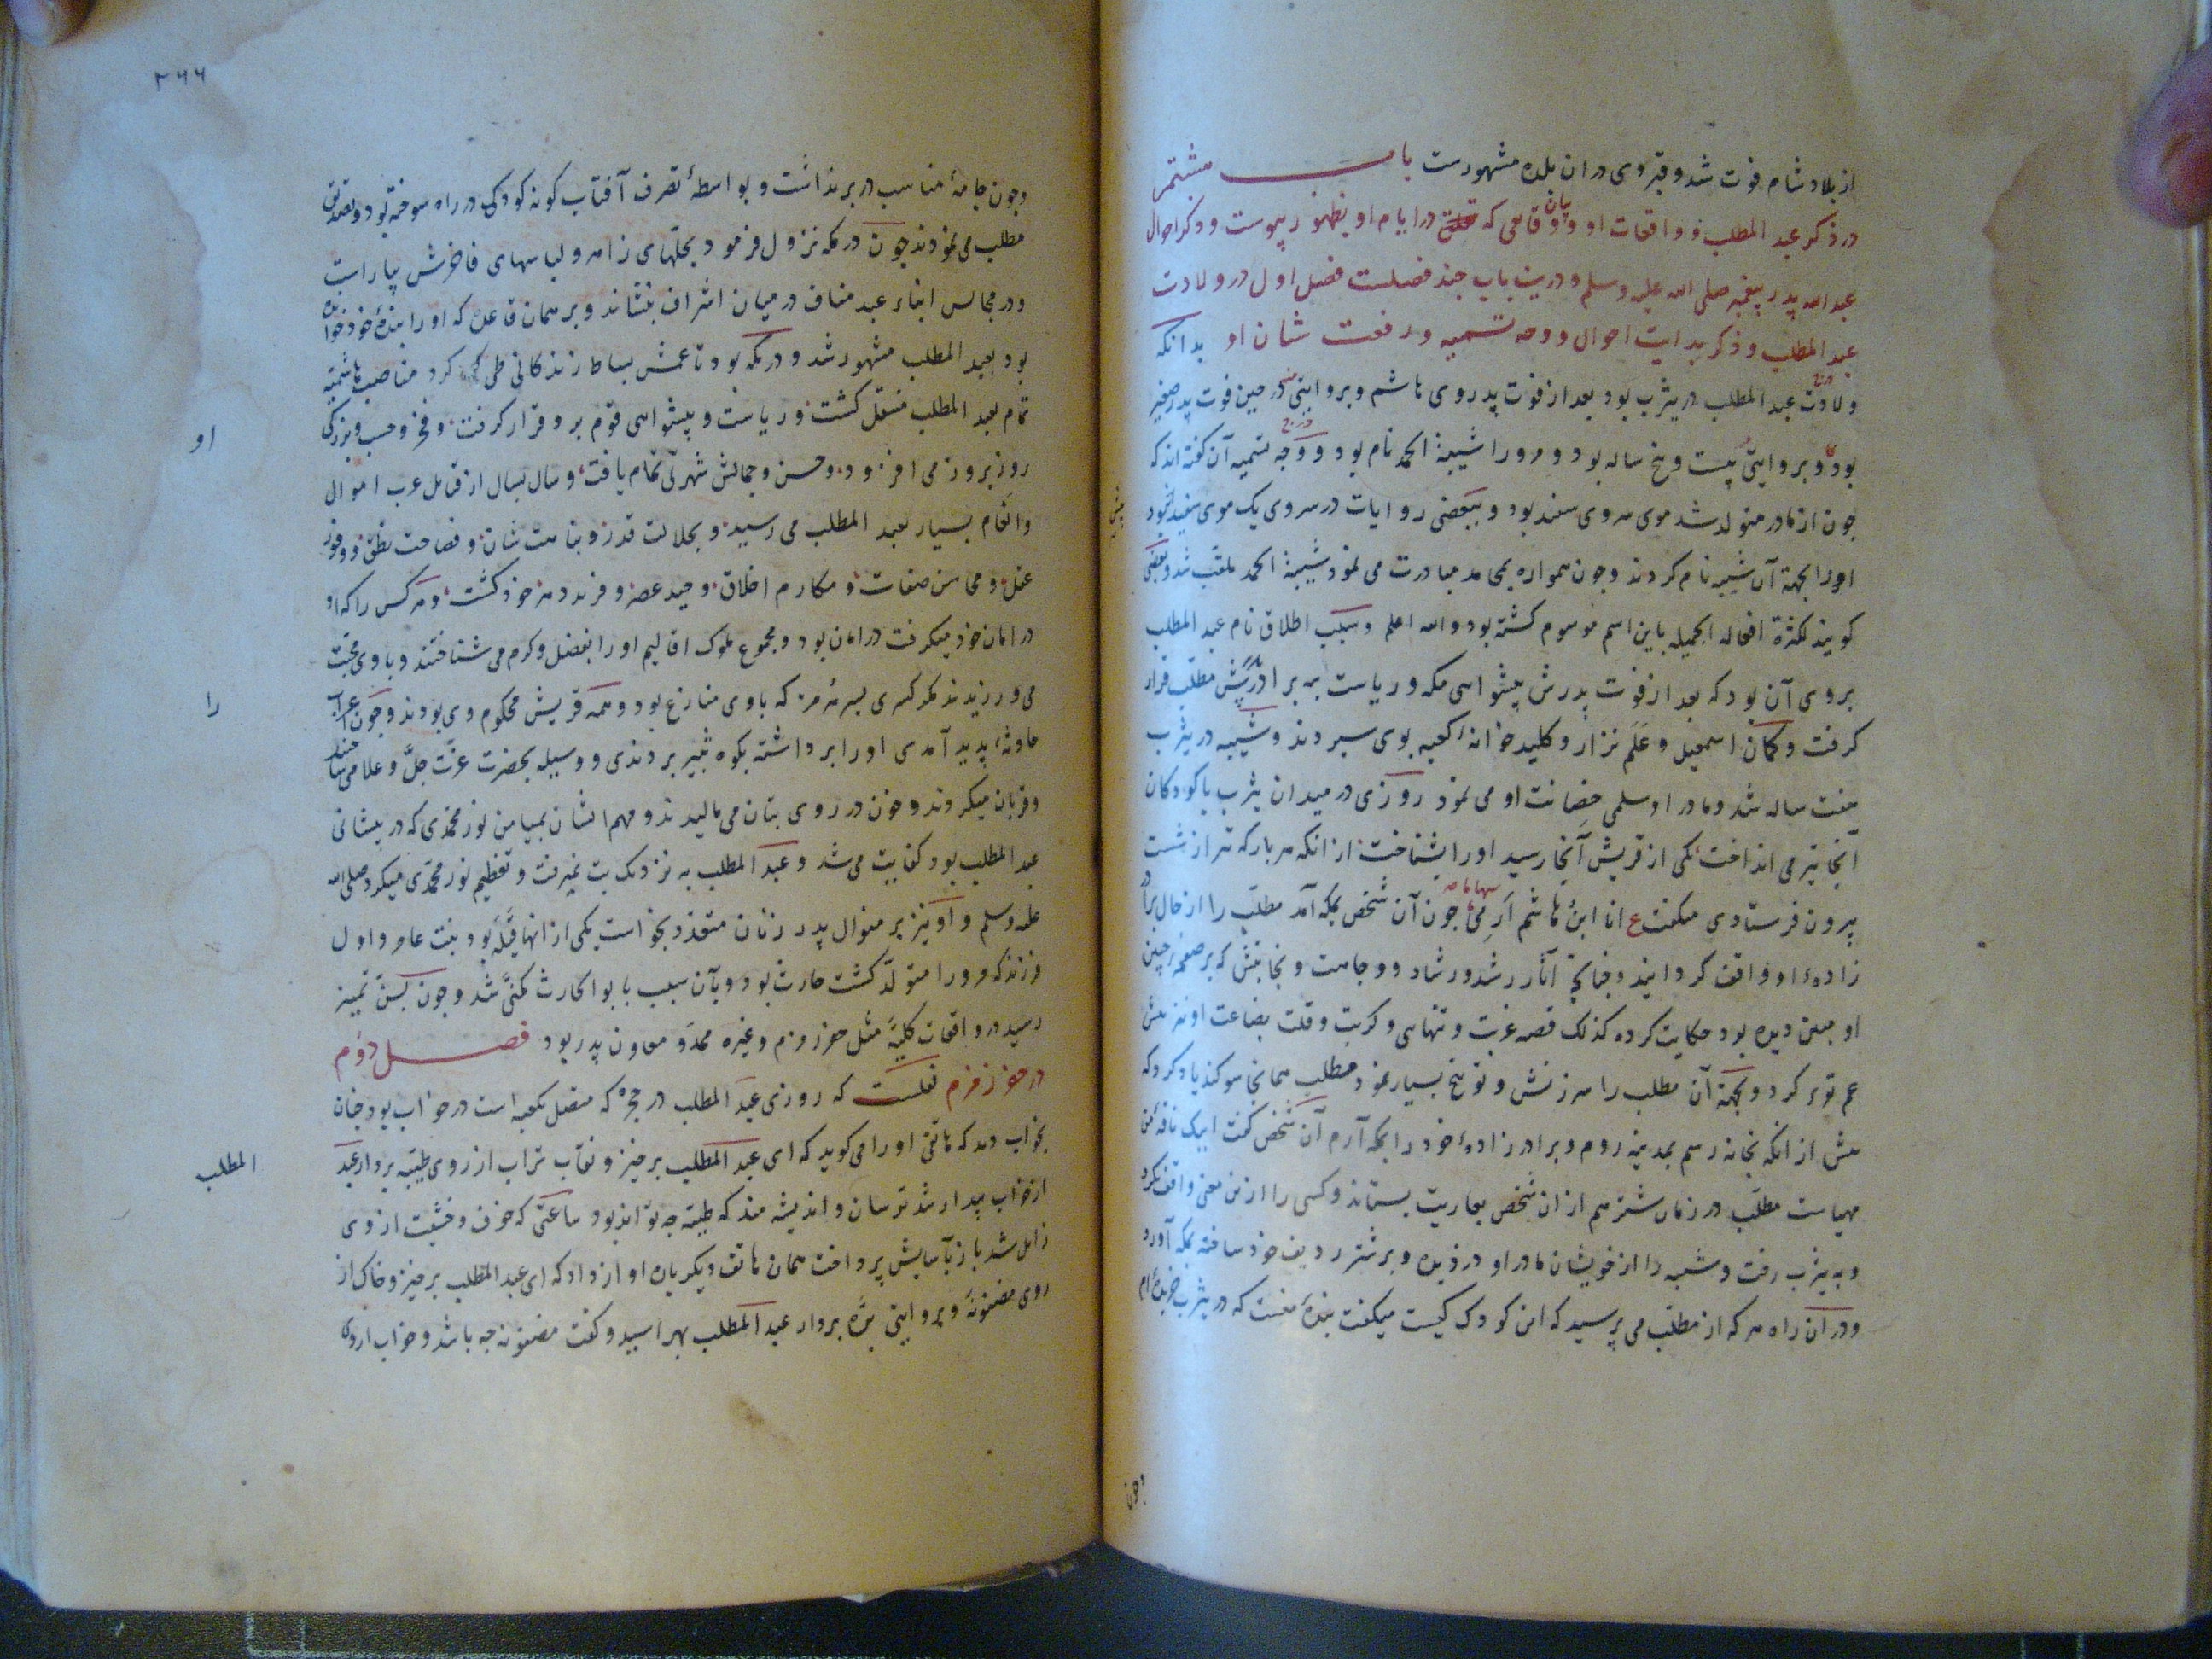 از بلاد شام فوت شد و قبر وی در ان بلده مشهورست باب مشتمر
در ذکر عبد المطلب و واقعات او و وقایعی که در ایام او بظهور پیوست و ذکر احوال
عبد الله پدر پیغمبر صلی الله علیه وسلم و درین باب چند فصلست فصل اول در ولادت
عبد المطلب و ذکر بدایت احوال و وجه تسمیه و رفعت شان او بدانکه
ولادت عبد المطلب در یثرب بود بعد از فوت پدر وی هاشم و بروایتی در حین فوت پدر صغیر
بود و بروایتی بیست و پنج ساله بود و مرورا شیبة الحمد نام بود و وجه تسمیه آن گفته اند که
چون از مادر متولد شد موی سر وی سفید بود و ببعضی روایات در سر وی یک موی سفید بود
اورا بجهة آن شیبه نام کردند و چون همواره بمحامد مبادرت می نمود شیبة الحمد ملقب شد و بعضی
گویند لکثرة افعاله الجمیله باین اسم موسوم گشته بود و الله اعلم و سبب اطلاق نام عبد المطلب
بر وی آن بود که بعد از فوت پدرش پیشوایی مکه و ریاست به برادرش مطلب قرار
گرفت و کمان اسمعیل و علم نزار و کلید خوانۀ کعبه بوی سپردند و شیبه در یثرب
هفت ساله شد و مادر او سلمی حضانت او می نمود روزی در میدان یثرب با کودکان
آنجا تیر می انداخت یکی از قریش آنجا رسید اورا بشناخت از انکه هر بار که تیر از شست
بیرون فرستادی میگفت ع انا ابن هاشم ارمی سهاما چون آن شخص بمکه آمد مطلب را از حال برادر
زادۀ او واقف گردانید و چنانچه آثار رشد و رشاد و وجاهت و نجابتش که بر صفحه جبین
او مبین دیده بود حکایت کرده کذلک قصه غربت و تنهایی و کربت و قلت بضاعت او نیز پیش
عم تقریر کرد و بجهة آن مطلب را سرزنش و توبیخ بسیار نمود و مطلب همانجا سوگند یاد کرد که
پیش از انکه بخانه رسم بمدینه روم و برادر زادۀ خود را بمکه آرم آن شخص گفت اینک ناقۀ من
مهیاست مطلب در زمان شتر هم از ان شخص بعاریت بستاند و کسی را ازین معنی واقف نکرد
و به یثرب رفت و شیبه را از خویشان مادر او دزدیده و بر شتر ردیف خود ساخته بمکه آورد
و در آن راه هر که از مطلب می پرسید که این کودک کیست میگفت بندۀ منست که در یثرب خریده ام
وچون
۲۶۶
وچون جامۀ مناسب در بر نداشت و بواسطۀ تصرف آفتاب گونه کودک در راه سوخته بود و تصدیق
مطلب می نمودند چون در مکه نزول فرمود بحلتهای زاهر و لباسهای فاخرش بیاراست
و در مجالس ابناء عبد مناف در میان اشراف بنشاند و بر همان قاعده که او را بندۀ خود خوانده
بود بعبد المطلب مشهور شد و در مکه بود تا عمش بساط زندگانی طی کرد مناصب هاشمیه
تمام بعبد المطلب منتقل گشت و ریاست و پیشوایی قوم برو قرار گرفت و فخر و حسب و بزرگی او
روز بروز می افزود و حسن و جمالش شهرتی تمام یافت و سال بسال از قبایل عرب اموال
و انعام بسیار بعبد المطلب می رسید و بجلالت قدر و نباهت شان و فصاحت نطق و وفور
عقل و محاسن صفات و مکارم اخلاق وحید عصر و فرید دهر خود گشت و هر کس را که او
در امان خود میگرفت در امان بود و مجموع ملوک اقالیم او را بفضل و کرم می شناختند و باوی محبت
می ورزیدند مگر کسری پسر هرمز که باوی منازع بود و همه قریش محکوم وی بودند و چون اعراب را
حادثۀ پدید آمدی او را بر داشته بکوه ثبیر بردندی و وسیله بحضرت عزت جل و علا می ساختند
و قربان میکردند و خون در روی بتان می مالیدند و مهم ایشان بمیامن نور محمدی که در پیشانی
عبد المطلب بود کفایت می شد و عبد المطلب به نزدیک بت نمیرفت و تعظیم نور محمدی میکرد صلی الله
علیه وسلم و او نیز بر منوال پدر زنان متعدد بخواست یکی از انها قیله بود بنت عامر و اول
فرزند که مرورا متولد گشت حارث بود و بآن سبب بابو الحارث مکنی شد و چون بسن تمییز
رسید در واقعات کلیه مثل حفر زمزم و غیره ممد و معاون پدر بود فصل دوم
در حفر زمزم نقلست که روزی عبد المطلب در حجره که متصل کعبه است در خواب بود چنان
بخواب دید که هاتفی او را می گوید که ای عبد المطلب برخیز و نقاب تراب از روی طیبه بردار عبد المطلب
از خواب بیدار شد ترسان و اندیشه مند که طیبه چه تواند بود ساعتی که خوف و خشیت از وی
زایل شد باز بآسایش پرداخت همان هاتف دیگر باره آواز داد که ای عبد المطلب برخیز و خاک از
روی مضنونه و بروایتی بره بردار عبد المطلب بهراسید و گفت مضنونه چه باشد و خواب از وی